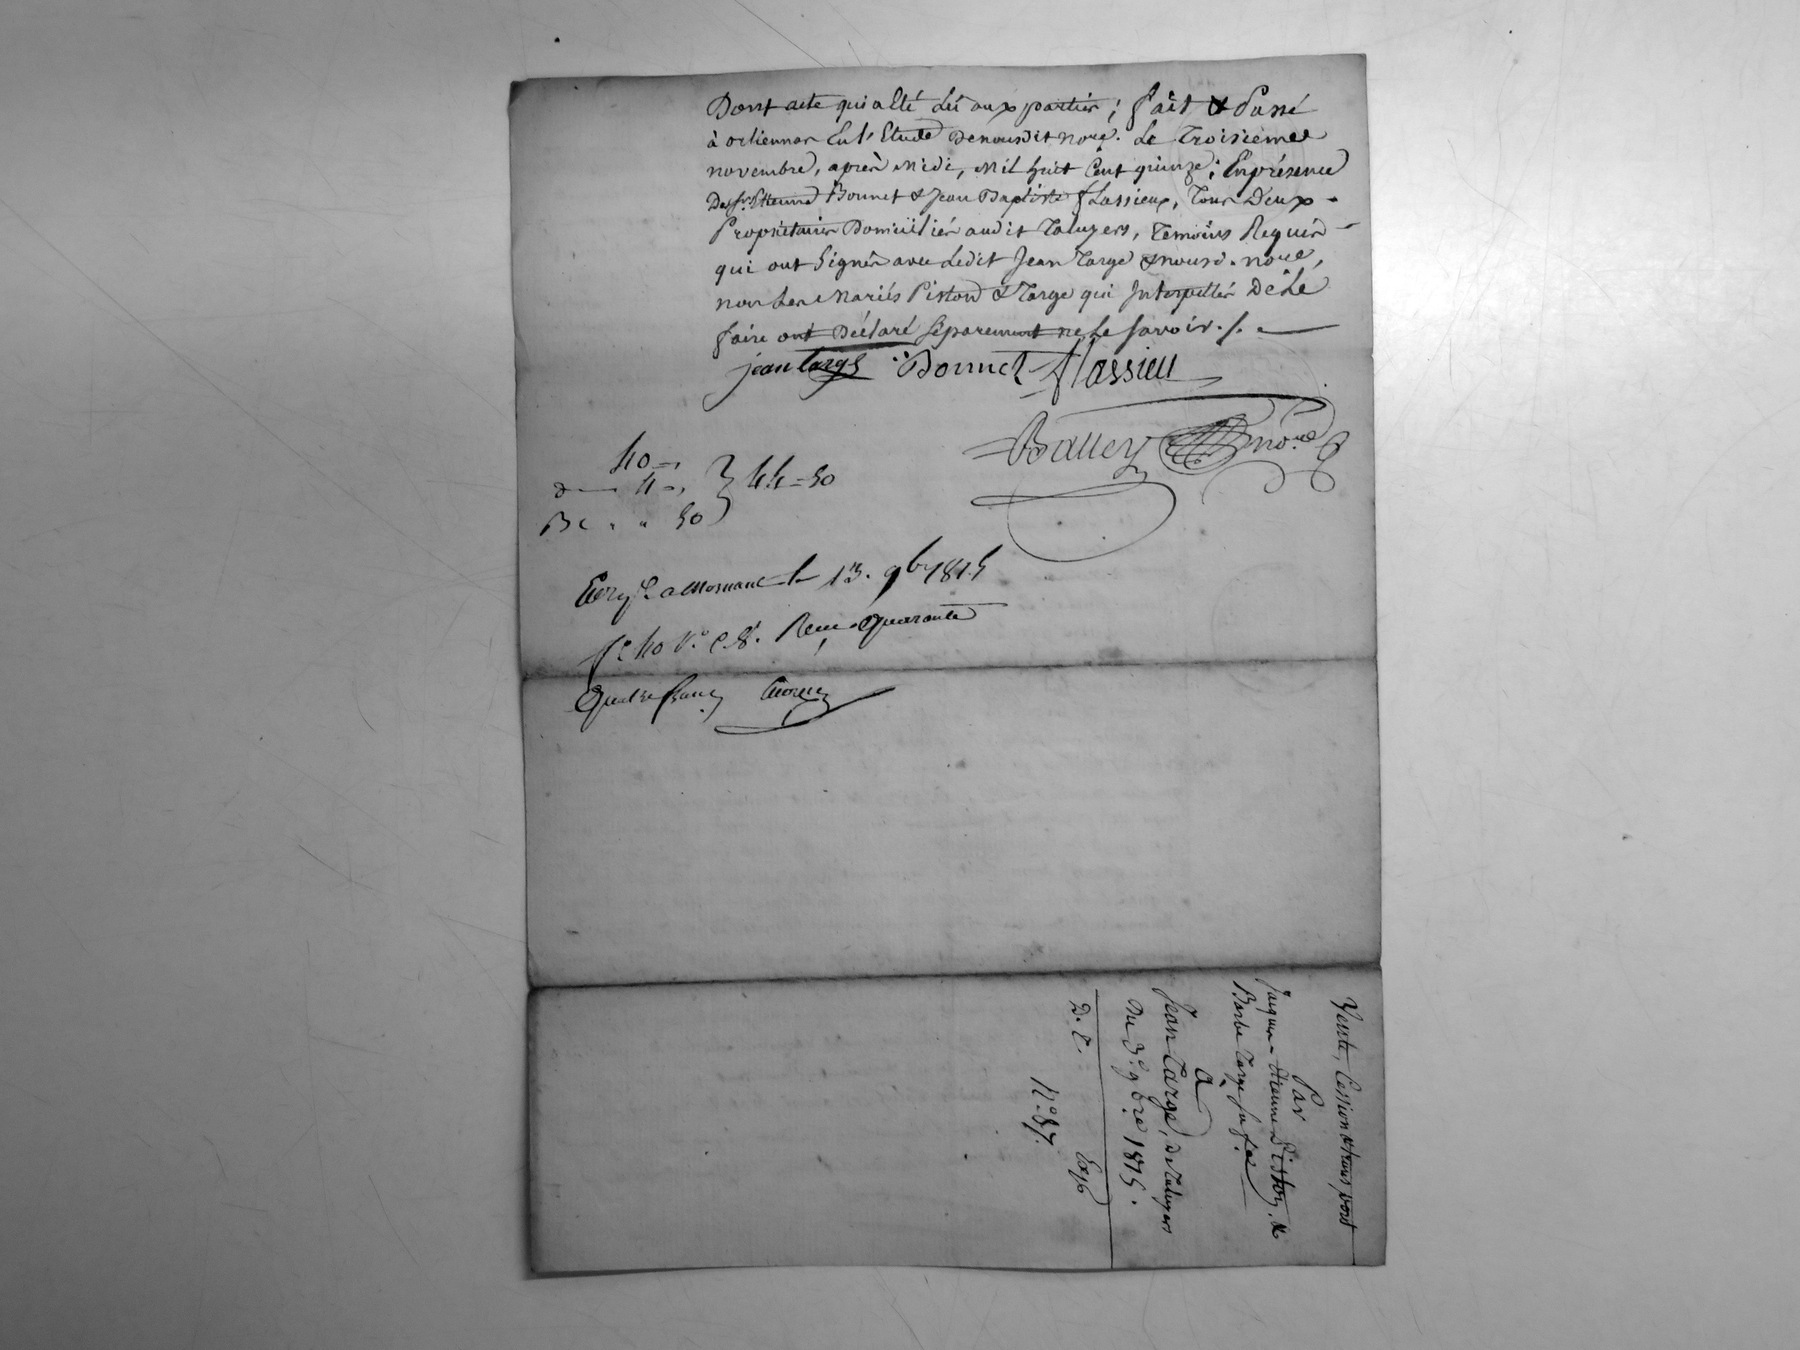 Dont acte qui a Eté Lû aux parties ; fait & Passé
à orliennas En l'Etude De nousdit nore. Le Troisième
novembre, après Midi, Mil huit Cent quinze ; En présence
Des Srs. Etienne Bonnet & Jean Baptiste flassieux, Tous Deux
Propriétaires Domiciliés audit Taluyers, Témoins Requis
qui ont Signés avec Ledit Jean Targe & nousd. nore,
non Les Mariés Piston & Targe qui Interpellés De Le
faire ont Déclaré séparément ne Le savoir ./.
jean targe Bonnet flassieu
Balley nore
40 = ,
d 4 = ,
Be " " 50
44 = 50
Enregé. a Mornant le 13. 9bre 1815
fo. 40 vo. c. 8. Recu Quarante
Quatre francs
Vente, Cession & transport
Par
Jacques Etienne Piston, &
Barbe Targe sa fe.
à
Jean Targe, De Taluyers
Du 3e. 9bre 1815.
D. T. Exp
No. 87.